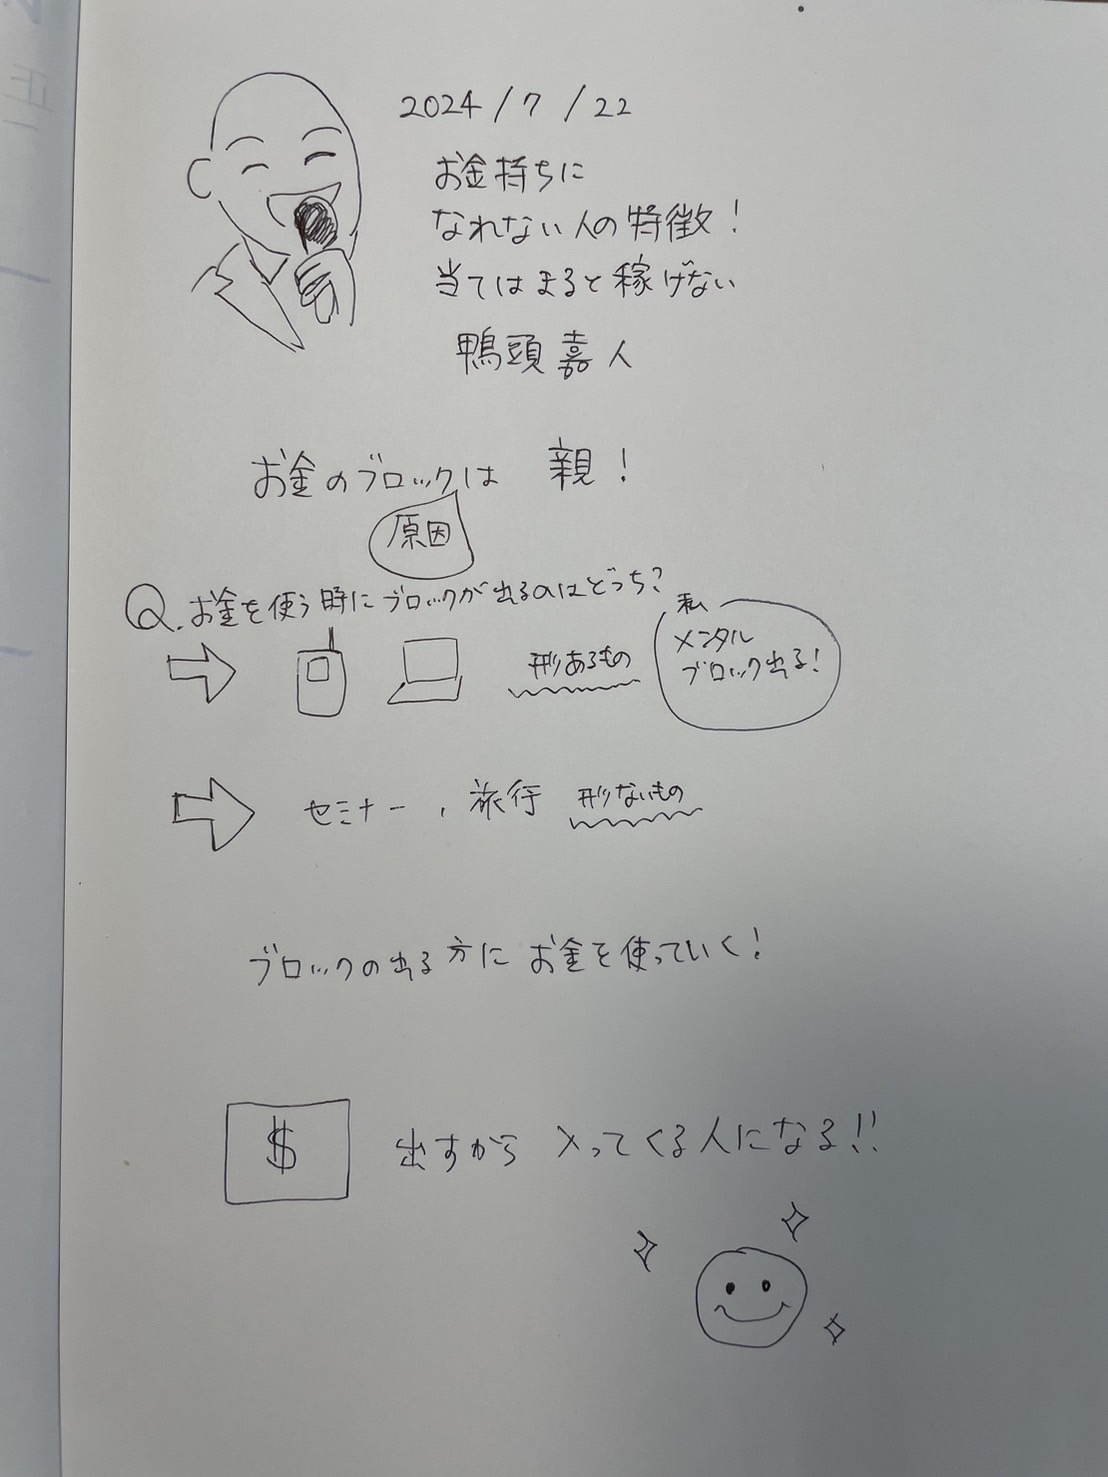 2024/7/22
お金持ちに
なれない人の特徴!
当てはまると稼げない
鴨頭嘉人
お金のブロックは 親!
原因
Q.お金を使う時にブロックが出るのはどっち?
形あるもの
私
メンタル
ブロック出る!
セミナー、旅行 形ないもの
ブロックの出る方にお金を使っていく!
$ 出すから入ってくる人になる!!